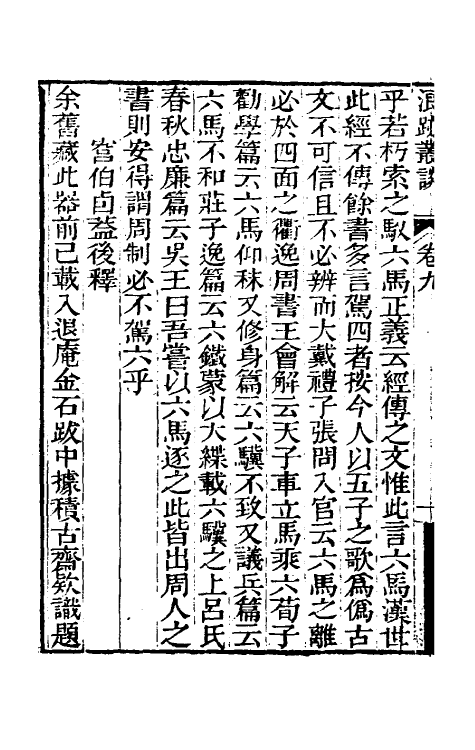 浪跡叢談 卷九
乎若朽索之馭六馬正義云經傳之文惟此言六馬漢世
此經不傳餘書多言駕四者按今人以五子之歌爲僞古
文不可信且不必辨而大戴禮子張問入官云六馬之離
必於四面之衢逸周書王會解云天子車立馬乘六荀子
勸學篇云六馬仰秣又修身篇云六驥不致又議兵篇云
六馬不和莊子逸篇云六鐵蒙以大緤載六驥之上呂氏
春秋忠廉篇云吳王曰吾嘗以六馬逐之此皆出周人之
書則安得謂周制必不駕六乎
宮伯卣葢後釋
余舊藏此器前已載入退庵金石跋中據積古齋欵識題